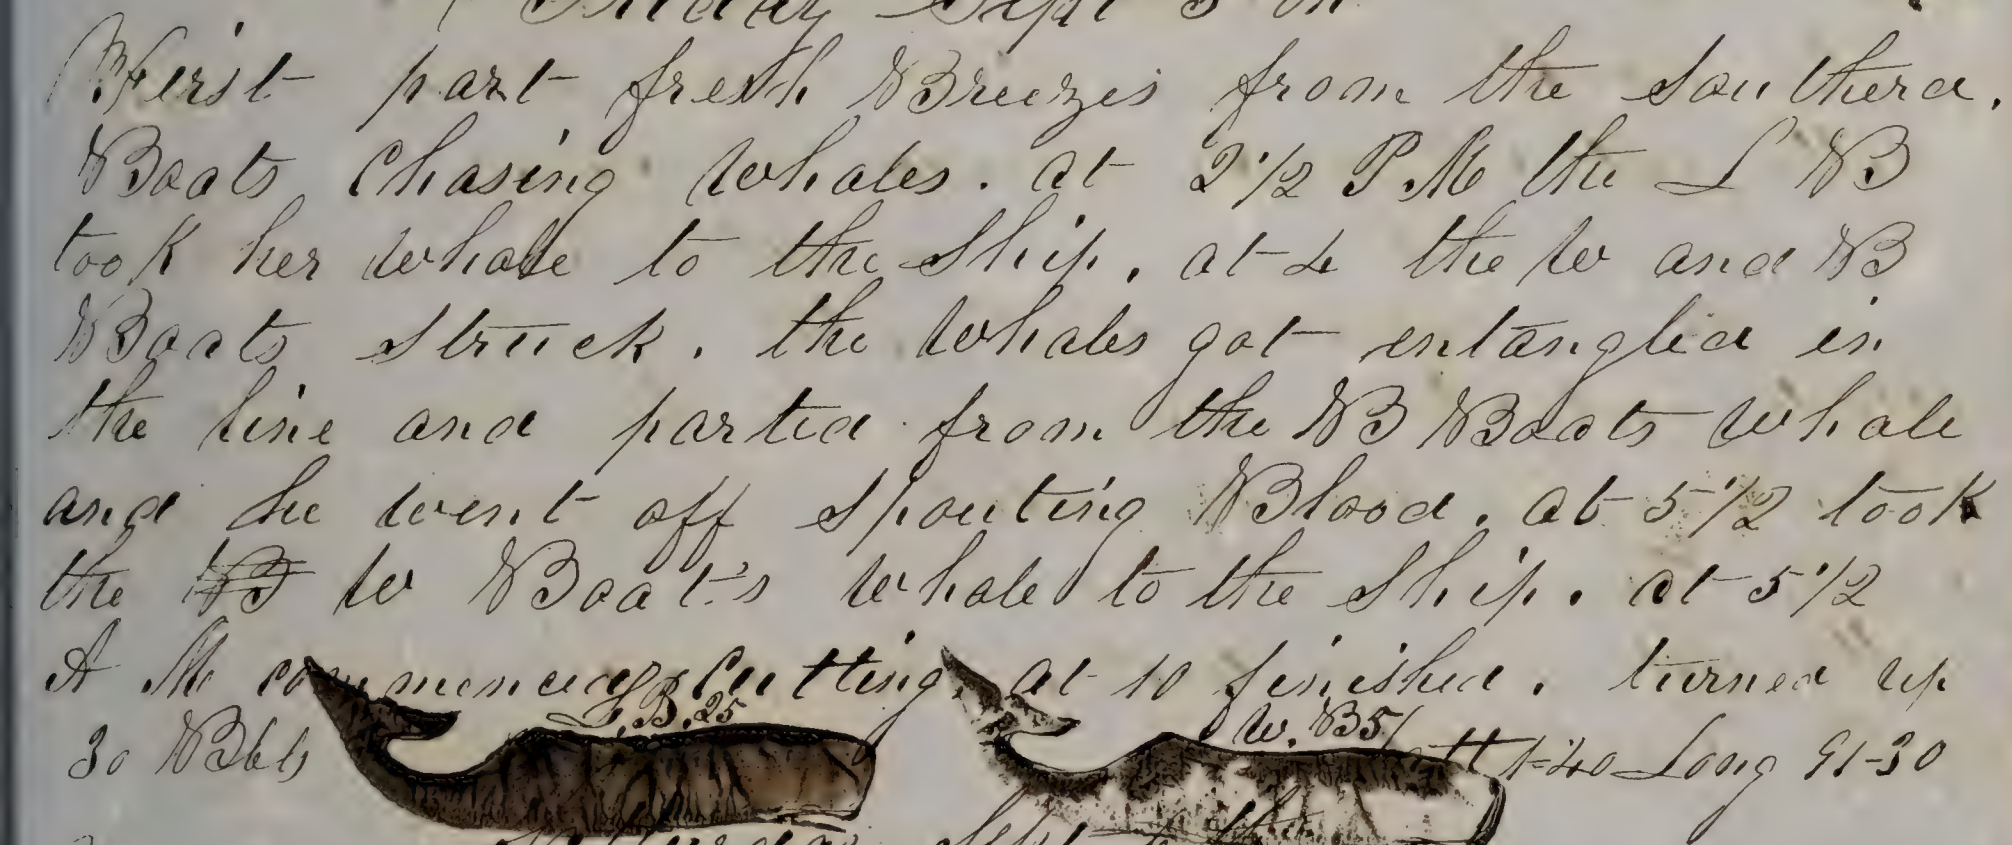 Friday Sept 5 th
First part fresh Breezes from the Southerd.
Boats Chasing Whales. at 2 1/2 P.M the L B
took her whale to the Ship. at 4 the W and B
Boats Struck. the Whales got entangled in
the line and parted from the B Boats Whale
and he went off Spouting Blood. at 5 1/2 took
the B W Boat's whale to the Ship. at 5 1/2
A M commenced Cutting. at 10 finished. turned up
L.B. 25 W. B 5
30 Bbls Latt 1-40 Long 91-30
Saturday Sept 6 th